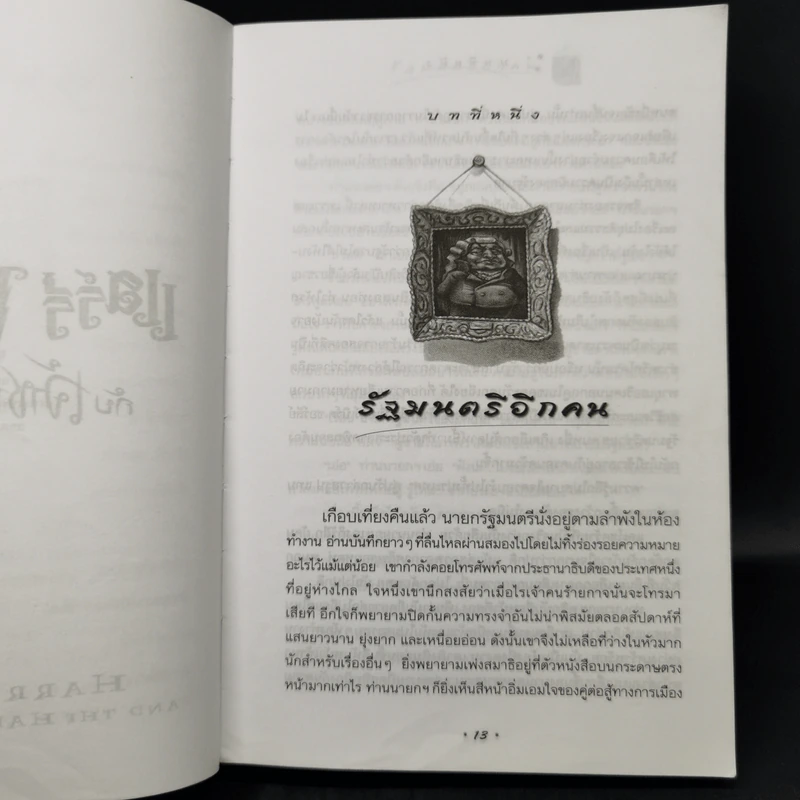 แฮร์รี่
กับเจ้าช
HARR
AND THE HA
บทที่หนึ่ง
รัฐมนตรีอีกคน
เกือบเที่ยงคืนแล้ว นายกรัฐมนตรีนั่งอยู่ตามลำพังในห้อง
ทำงาน อ่านบันทึกยาวๆ ที่ลื่นไหลผ่านสมองไปโดยไม่ทิ้งร่องรอยความหมาย
อะไรไว้แม้แต่น้อย เขากำลังคอยโทรศัพท์จากประธานาธิบดีของประเทศหนึ่ง
ที่อยู่ห่างไกล ใจหนึ่งเขานึกสงสัยว่าเมื่อไรเจ้าคนร้ายกาจนั่นจะโทรมา
เสียที อีกใจก็พยายามปิดกั้นความทรงจำอันไม่น่าพิสมัยตลอดสัปดาห์ที่
แสนยาวนาน ยุ่งยาก และเหนื่อยอ่อน ดังนั้นเขาจึงไม่เหลือที่ว่างในหัวมาก
นักสำหรับเรื่องอื่นๆ ยิ่งพยายามเพ่งสมาธิอยู่ที่ตัวหนังสือบนกระดาษตรง
หน้ามากเท่าไร ท่านนายกฯ ก็ยิ่งเห็นสีหน้าอิ่มเอมใจของคู่ต่อสู้ทางการเมือง
• 13 •